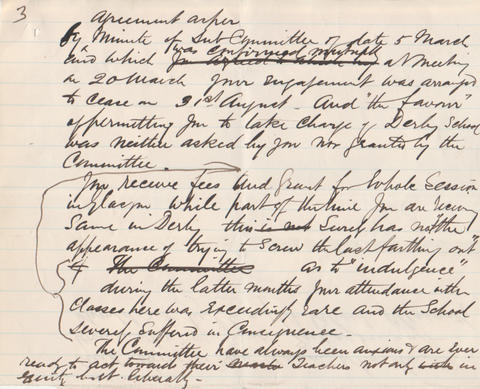 3
Agreement as per
by Minute of Sub Committee of date 5 March
and which was confirmed at meeting
on 20 March your engagement was arranged
to cease on 31st August. And "the favour"
of permitting you to take charge of Derby School
was neither asked by you nor granted by the
Committee.
You receive fees and Grant for Whole Session
in Glasgow while part of the time you are
Same in Derby this Surely has not the
appearance of trying to Screw the last farthing out"
of The Committee as to "indulgence"
during the latter months your attendance in the
Classes here was Exceedingly rare and the School
severely Suffered in Consequence.
The Committee have always been anxious & are Ever
ready to act towards their Teachers not only in
equity but liberally.